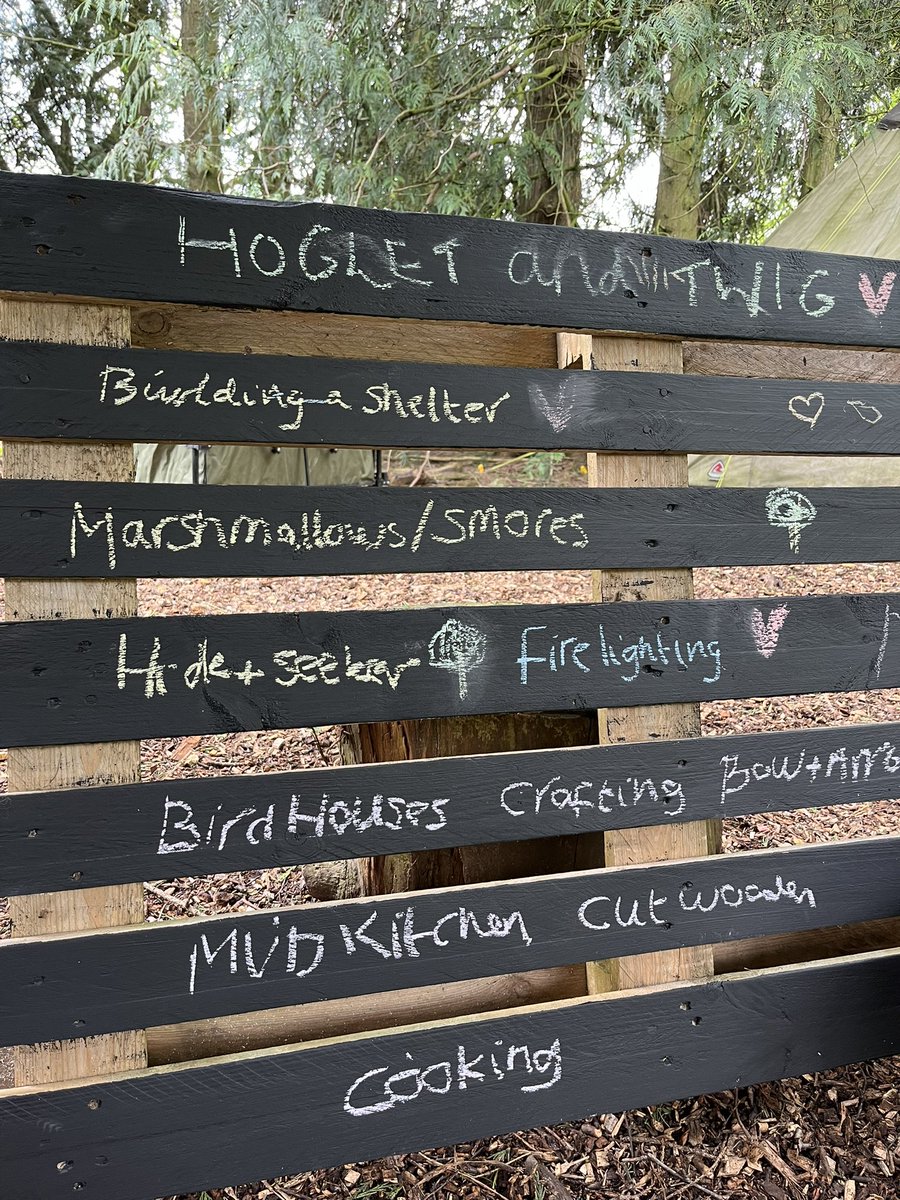 HOGLET and TWIG
Building a shelter
Marshmallows/smores
Hide + seeker Fire lighting
Bird Houses crafting Bow + Arro
MUD Kitchen cut wooden
Cooking